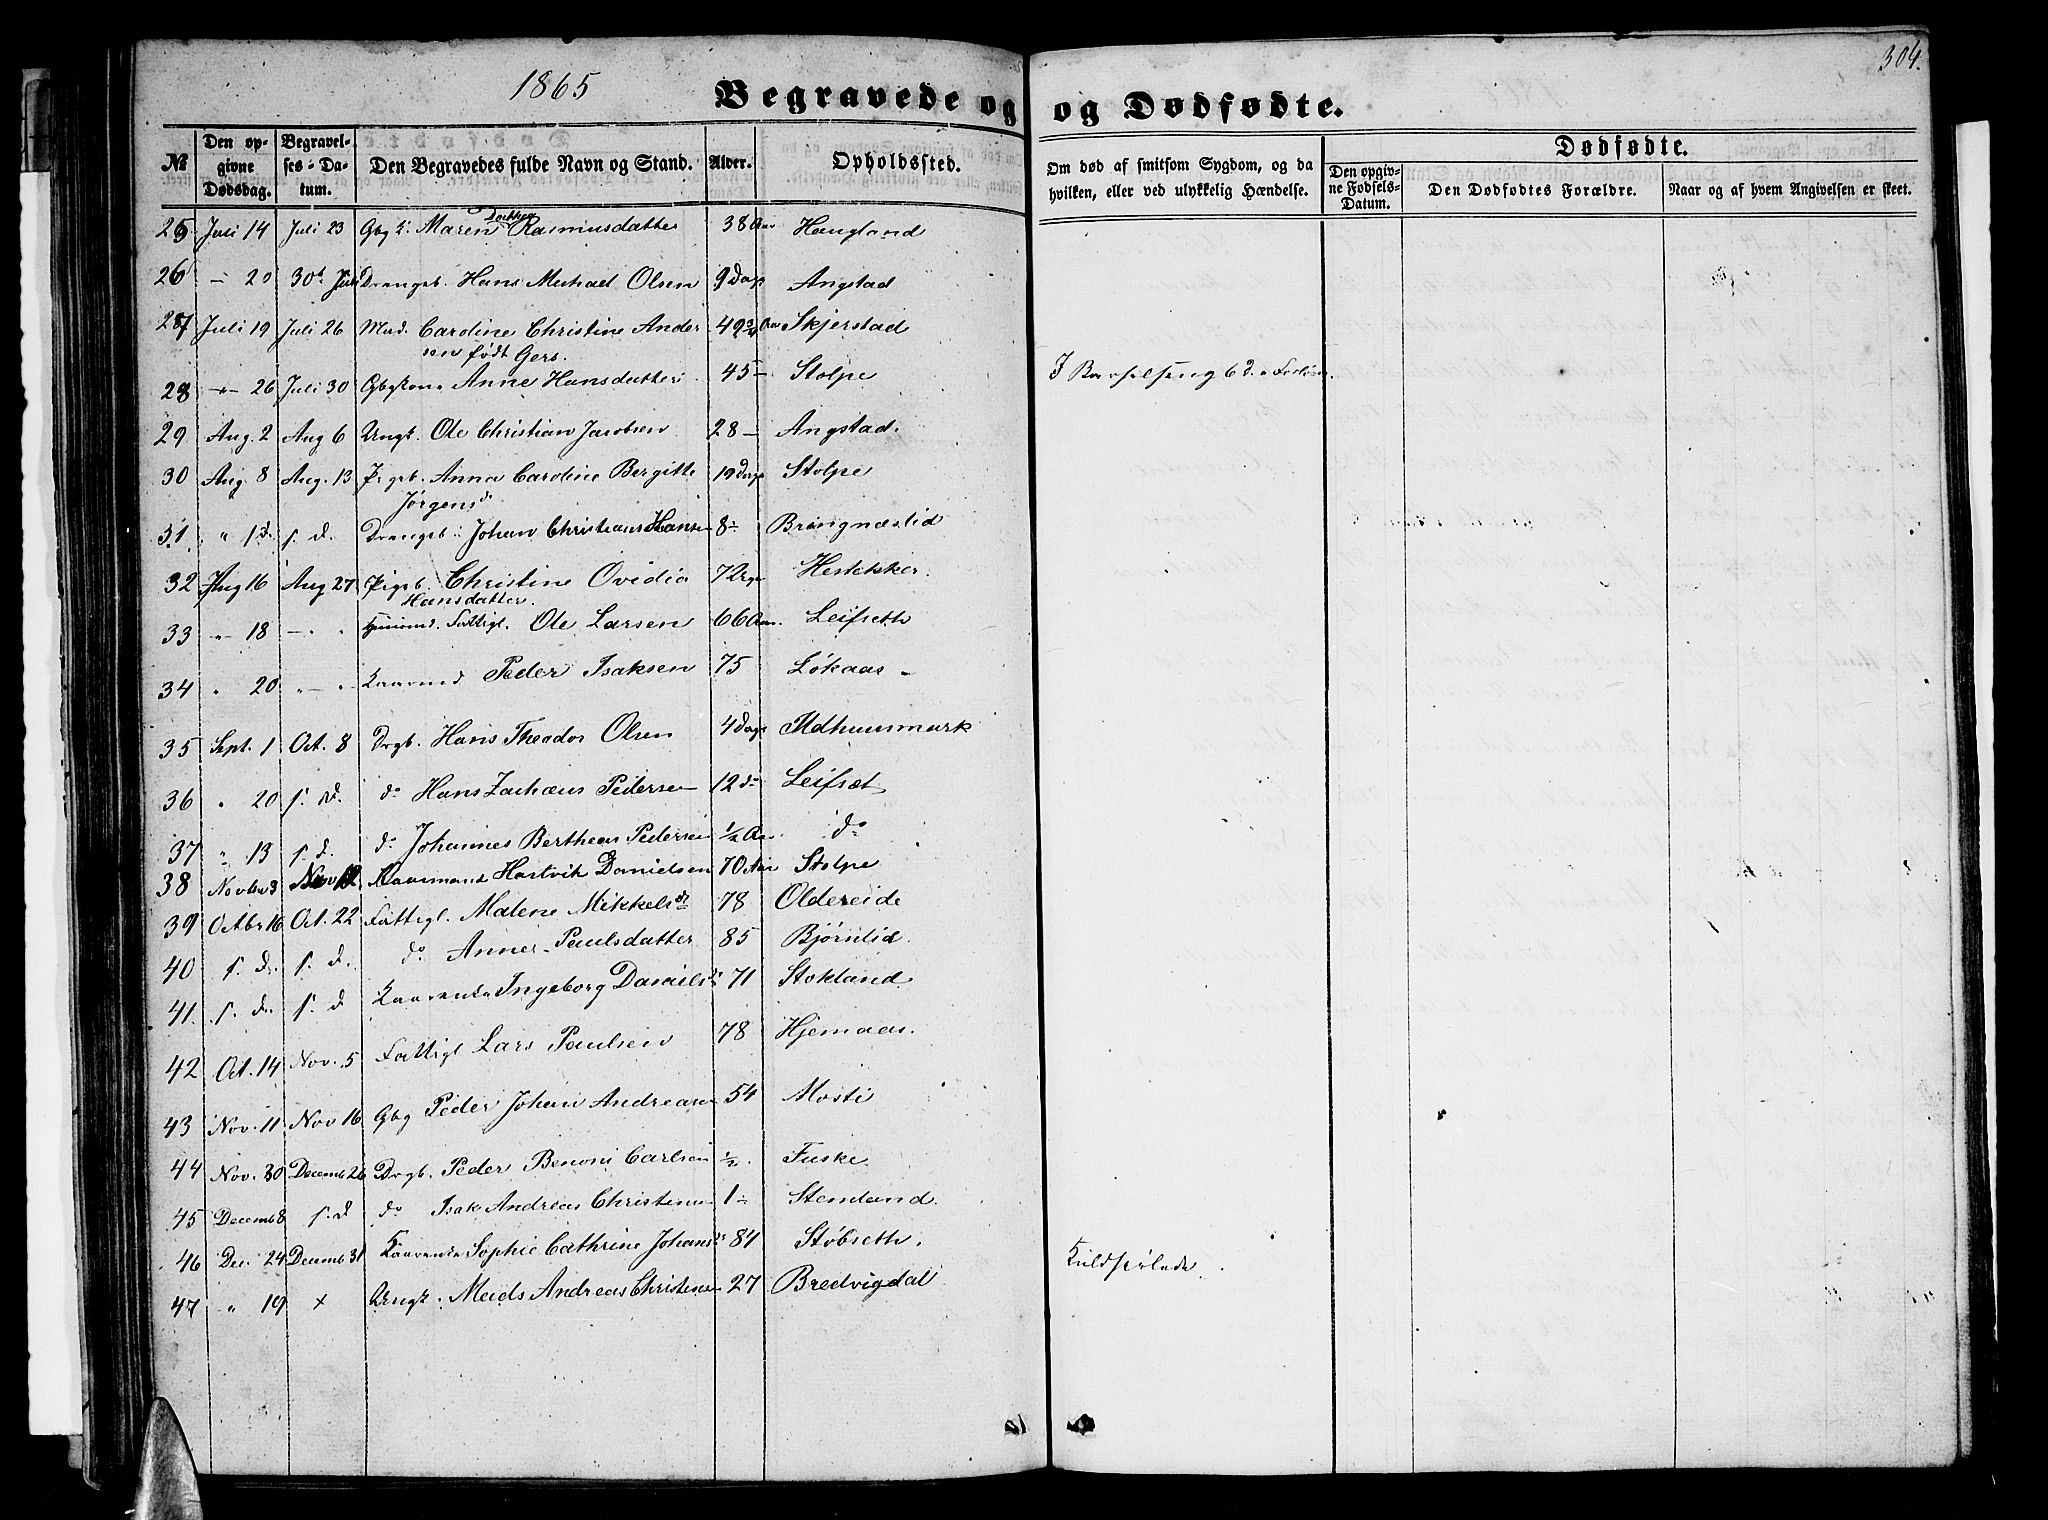 304.
1865
Begravede og
og Dødfødte.
№
Den opgivne Dødsdag.
Begravelses-Datum.
Den Begravedes fulde Navn og Stand.
Alder.
Opholdssted.
Om død af smitsom Sygdom, og da hvilken, eller ved ulykkelig Hændelse.
Dødfødte.
Den opgivne Fødsels-Datum.
Den Dødfødtes Forældre.
Naar og af hvem Angivelsen er skeet.
25 Juli 14 Juli 23 Maren Rasmusdatter 38 Aar Haugland
26 – 20 30t Juli Drengb. Hans Michael Olsen 9 Dage Angstad
27 Juli 19 Juli 26 Mad. Cardine Christine Ander 49 3/4 Aar Skjerstad
sen født Gers.
28 –"– 26 Juli 30 Gbgkone Anne Hansdatter 45 – Stolpe
I Barselseng 6 d.
29 Aug. 2 Aug 6 Ungk. Ole Christian Jacobsen 28 – Angstad.
30 Aug 8 Aug. 13 Pigeb. Anna Cardine Bergitte 19 Dage Stolpe
Jørgensd
31. " 1 d. s. d. Drengeb. Johan Christian Hansen 8 – Bringnæslid
32 Aug 16 Aug 27 Pigeb. Christine Ovidia 7 Uger
Hansdatter.
33 –"– 18 – " – Fattigl. Ole Larsen 66 Aar. Leifseth
34 " 20 " – " Kaarmd Peder Isaksen 75 Løkaas –
35 Sept. 1 Oct. 8 Drgb. Hans Theodor Olsen 4 Dage
36 " 20 s. D. do Hans Zachæus Pedersen 12 do Leifset
37 " 13 s. d. do Johannes Bertheas Pedersen 1/2 Aar do
38 Novbr 3 Nov 12 Kaarmand Hartvik Danielsen 70 Aar Stolpe
39 Octbr 16 Oct. 22 Fattigl. Malene Mikkelsdr 78 Oldereide
40 s. d. s. d. do Anne Paulsdatter 85 Bjørnlid.
41. s. d. s. d Kaarenke Ingeborg Danielsdr 71 Stokland
42 Oct. 14 Nov. 5 Fattigl Lars Paulsen 78 Hjemaas.
43 Nov. 11 Nov 16 Gbg Peder Johan Andreasen 54 Mosti
44 Nov. 30 Decemb 26 Drgb. Peder Benoni Carlsen 1/2. Fuske.
45 Decemb 8 s. d do Isak Andreas Christensen 1 – Stemland.
46 Dec. 24 Decemb 31 Kaarenke Sophie Cathrine Johansdr 84 Støbseth.
47 " 19 × Ungk. Meids Andreas Christensen 27 Bredvigdal
Kuldseilede.